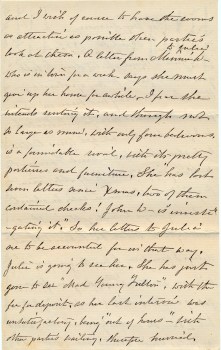 and I wish of course to have the rooms
as attractive as possible when parties
look at them. A letter from
who is in town for a week says she must
give up her house for awhile. I fear she
intends renting it, and though not
so large as mine, with only four bedrooms
is a formidable rival, with its pretty
pictures and furniture. She has lost
seven letters since Xmas, two of them
contained checks! John is
"gating it." So her letters to Julia
are to be accounted for in that way.
Julia is going to see her. She has just
gone to see "Mad" "Fanny", with the
as her last interview was
unsatisfactory, being "out of hours" - with
other parties waiting.